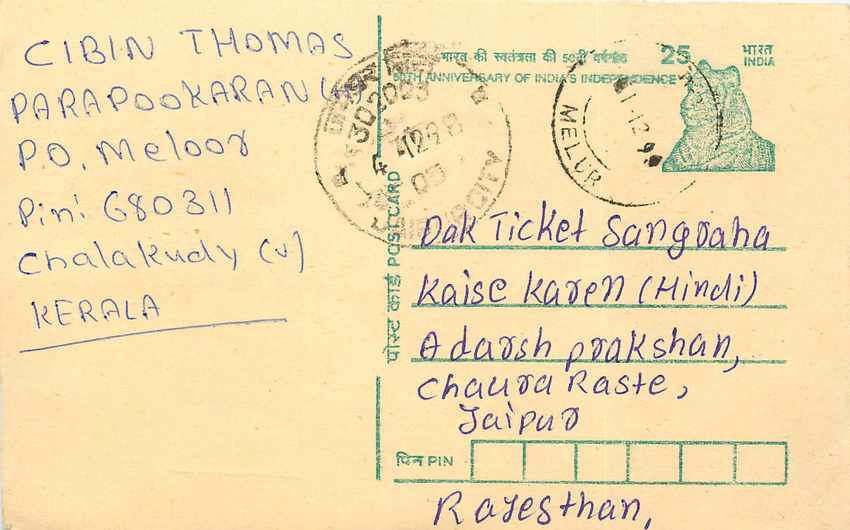 CIBIN THOMAS
PARAPOOKARAN (H)
P.O. Meloor
Pin: 680311
Chalakudy (V)
KERALA
भारत की स्वतंत्रता की 50वीं वर्षगांठ
50TH ANNIVERSARY OF INDIA'S INDEPENDENCE
25
भारत
INDIA
302003
4 1298
JAIPUR CITY
MELUR
1-12-9
पोस्ट कार्ड POST CARD
Dak Ticket Sangraha
Kaise Karen (Hindi)
Adarsh prakshan,
Chaura Raste,
Jaipur
पिन PIN
Rajesthan,